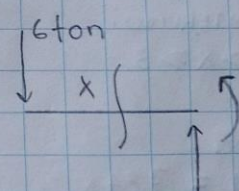 6ton
x